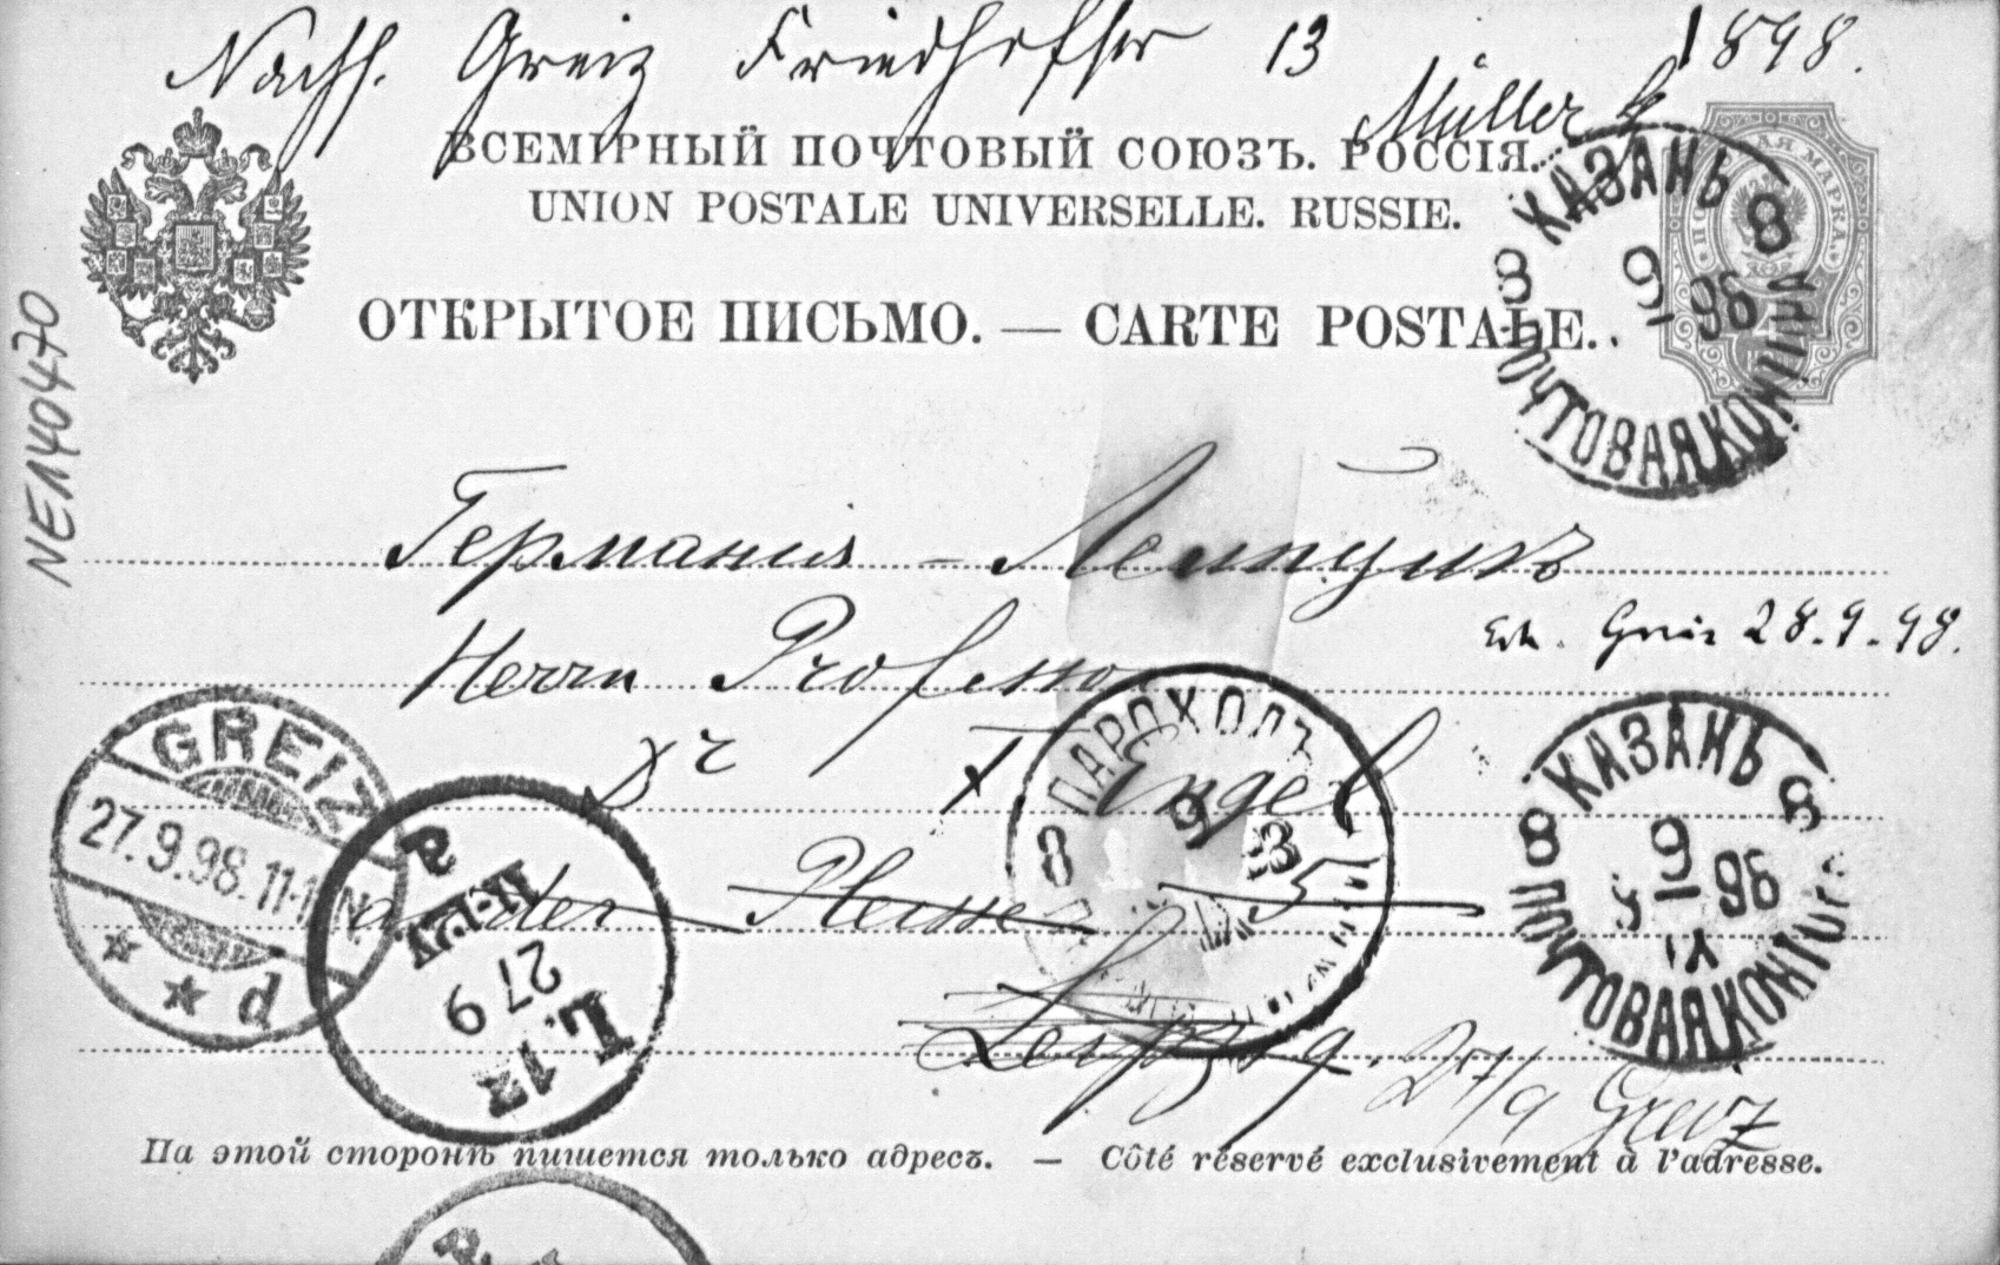 Greiz Friedhofstr 13 1898.
Müller
ВСЕМІРНЫЙ ПОЧТОВЫЙ СОЮЗЪ. РОССІЯ.
UNION POSTALE UNIVERSELLE. RUSSIE.
ОТКРЫТОЕ ПИСЬМО. — CARTE POSTALE.
МАРКА.
КАЗАНЬ 8
9
IX 96
8
ПОЧТОВАЯ КОН
NE140470
Германия – Лейпцигъ
Herrn Professor
Greiz 28.9.98.
Dr F. Engel
ПАРОХОДЪ
8
КАЗАНЬ 8
8 9 96
IX
ПОЧТОВАЯ КОНТО
GREIZ
27.9.98. 11-1 N.
* * d
L. 1z
27 9
11-12V.
a
an der Pleisse
Leipzig.
27/9 Greiz
На этой сторонѣ пишется только адресъ. — Côté réservé exclusivement à l'adresse.